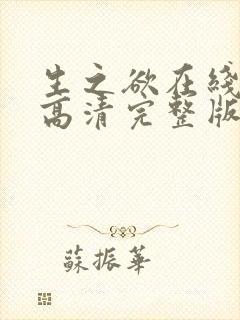 生之欲在綫
高清完整版
蘇振華